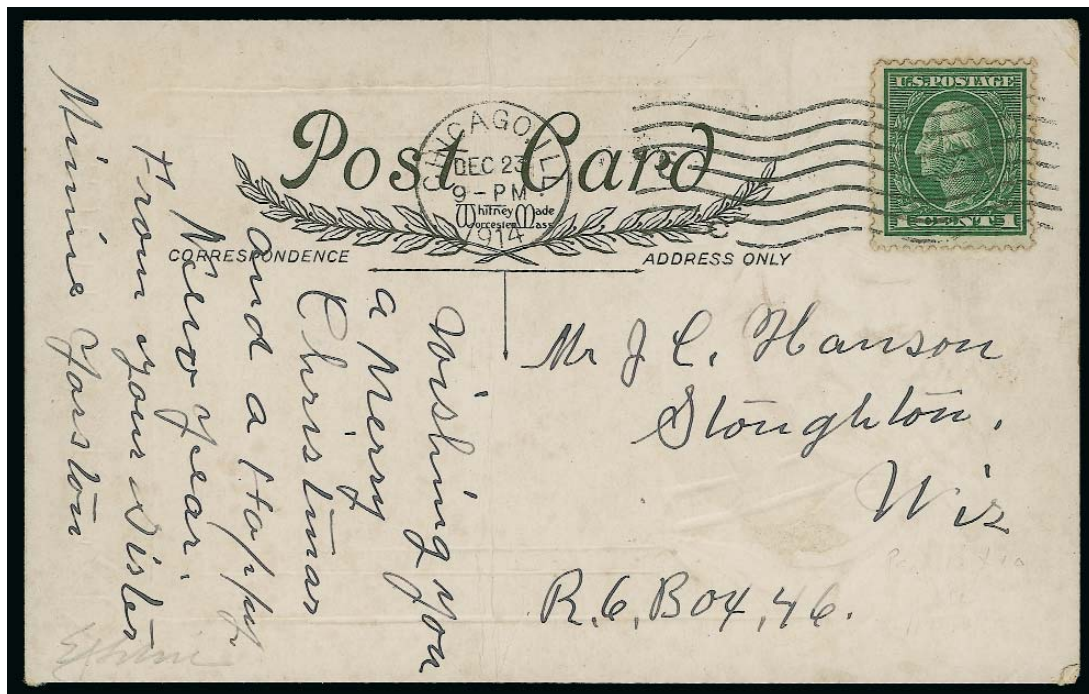 Post Card
CHICAGO, ILL.
DEC 23
9 - PM
1914
Whitney Made
Worcester Mass
U.S. POSTAGE
1 CENT 1
CORRESPONDENCE
ADDRESS ONLY
Wishing you
a Merry
Christmas
and a Happy
New Year
From your Sister
Minnie Yorston
Mr J. C. Hanson
Stoughton,
Wis
R. 6, Box, 46.